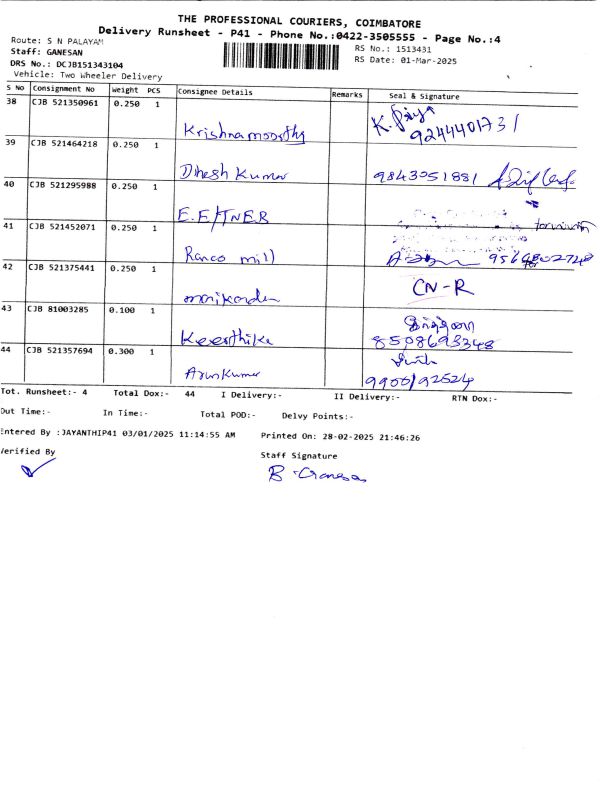 THE PROFESSIONAL COURIERS, COIMBATORE
Delivery Runsheet - P41 - Phone No.:0422-3505555 - Page No.:4
Route: S N PALAYAM
RS No.: 1513431
Staff: GANESAN
RS Date: 01-Mar-2025
DRS No.: DCJB151343104
Vehicle: Two Wheeler Delivery
S No Consignment No Weight PCS Consignee Details Remarks Seal & Signature
38 CJB 521350961 0.250 1
Krishnamoorthy K. Priya
9244401731
39 CJB 521464218 0.250 1
Dhesh Kumar 9843051881
40 CJB 521295988 0.250 1
E.E/TNEB
41 CJB 521452071 0.250 1
Ranco mill
42 CJB 521375441 0.250 1
CN-R
43 CJB 81003285 0.100 1
Keerthika 8508693348
44 CJB 521357694 0.300 1
ArunKumar
Tot. Runsheet:- 4 Total Dox:- 44 I Delivery:- II Delivery:- RTN Dox:-
Out Time:- In Time:- Total POD:- Delvy Points:-
Entered By :JAYANTHIP41 03/01/2025 11:14:55 AM Printed On: 28-02-2025 21:46:26
Verified By Staff Signature